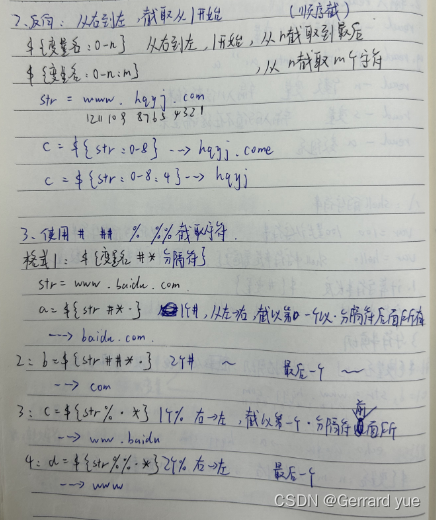 2.反向:从右到左,截取从1开始 (顺序截)
${变量名:0-n} 从右到左,1开始,从n截取到最后
${变量名:0-n:m} ,从n截取m个字符
str = www.hqyj.com
12 11 10 9 8 7 6 5 4 3 2 1
c = ${str:0-8} --> hqyj.come
c = ${str:0-8:4} --> hqyj
3、使用 # ## % %% 截取字符.
格式1: ${变量名#*分隔符}
str = www.baidu.com
a = ${str#*.} 1个#,从左→右,截以第一个以.分隔符后面所有
---> baidu.com.
2: b = ${str##*.} 2个# ~ 最后一个 ~
--> com
3: c = ${str%.*} 1个% 右→左,截以第一个.分隔符前面所
--> www.baidu
4: d = ${str%%.*} 2个% 右→左 最后一个
--> www
CSDN @Gerrard yue